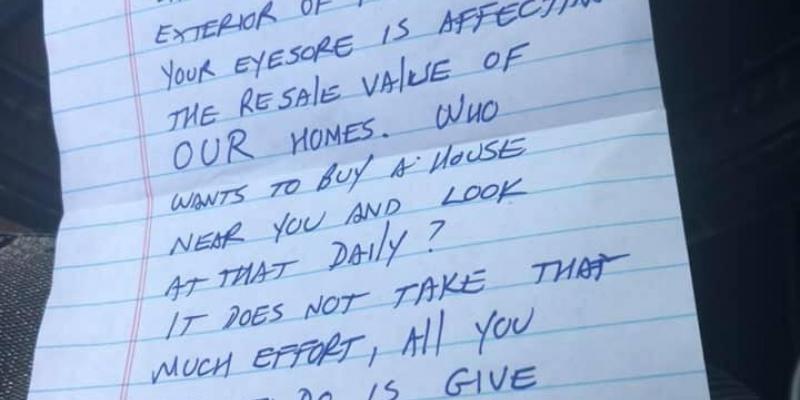 EXTERIOR OF
YOUR EYESORE IS AFFECTING
THE RESALE VALUE OF
OUR HOMES. WHO
WANTS TO BUY A HOUSE
NEAR YOU AND LOOK
AT THAT DAILY?
IT DOES NOT TAKE THAT
MUCH EFFORT, All YOU
DO IS GIVE